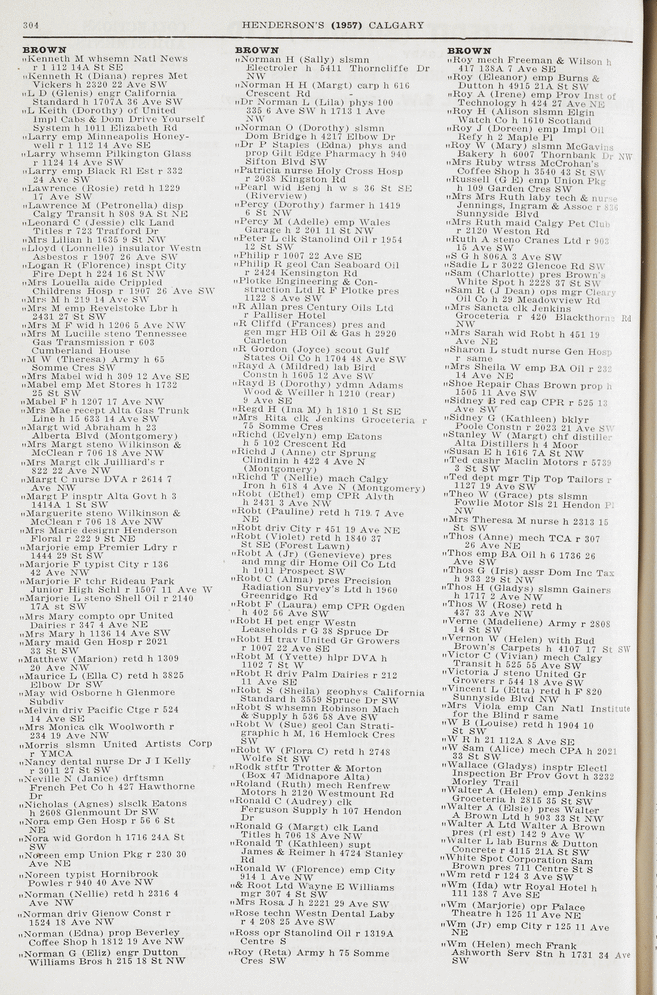 304
HENDERSON'S (1957) CALGARY
BROWN
"Kenneth M whsemn Natl News
r 1 112 14A St SE
"Kenneth R (Diana) repres Met
Vickers h 2320 22 Ave SW
"L D (Glenis) engr California
Standard h 1707A 36 Ave SW
"L Keith (Dorothy) of United
Impl Cabs & Dom Drive Yourself
System h 1011 Elizabeth Rd
"Larry emp Minneapolis Honey-
well r 1 112 14 Ave SE
"Larry whsemn Pilkington Glass
r 1124 14 Ave SW
"Larry emp Black Rl Est r 332
24 Ave SW
"Lawrence (Rosie) retd h 1229
17 Ave SW
"Lawrence M (Petronella) disp
Calgy Transit h 808 9A St NE
"Leonard C (Jessie) clk Land
Titles r 723 Trafford Dr
"Mrs Lillian h 1635 9 St NW
"Lloyd (Lonnelle) insulator Westn
Asbestos r 1907 26 Ave SW
"Logan R (Florence) inspt City
Fire Dept h 224 16 St NW
"Mrs Louella aide Crippled
Childrens Hosp r 1907 26 Ave SW
"Mrs M h 219 14 Ave SW
"Mrs M emp Revelstoke Lbr h
2431 27 St SW
"Mrs M F wid h 1206 5 Ave NW
"Mrs M Lucille steno Tennessee
Gas Transmission r 603
Cumberland House
"M W (Theresa) Army h 65
Somme Cres SW
"Mrs Mabel wid h 309 12 Ave SE
"Mabel emp Met Stores h 1732
25 St SW
"Mabel F h 1207 17 Ave NW
"Mrs Mae recept Alta Gas Trunk
Line h 15 633 14 Ave SW
"Margt wid Abraham h 23
Alberta Blvd (Montgomery)
"Mrs Margt steno Wilkinson &
McClean r 706 18 Ave NW
"Mrs Margt clk Juilliard's r
822 22 Ave NW
"Margt C nurse DVA r 2614 7
Ave NW
"Margt P insptr Alta Govt h 3
1414A 1 St SW
"Marguerite steno Wilkinson &
McClean r 706 18 Ave NW
"Mrs Marie designr Henderson
Floral r 222 9 St NE
"Marjorie emp Premier Ldry r
1444 29 St SW
"Marjorie F typist City r 136
42 Ave NW
"Marjorie F tchr Rideau Park
Junior High Schl r 1507 11 Ave W
"Marjorie L steno Shell Oil r 2140
17A st SW
"Mrs Mary compto opr United
Dairies r 347 4 Ave NE
"Mrs Mary h 1136 14 Ave SW
"Mary maid Gen Hosp r 2021
33 St SW
"Matthew (Marion) retd h 1309
20 Ave NW
"Maurice L (Ella C) retd h 3825
Elbow Dr SW
"May wid Osborne h Glenmore
Subdiv
"Melvin driv Pacific Ctge r 524
14 Ave SE
"Mrs Monica clk Woolworth r
234 19 Ave NW
"Morris slsmn United Artists Corp
r YMCA
"Nancy dental nurse Dr J I Kelly
r 3011 27 St SW
"Neville N (Janice) drftsmn
French Pet Co h 427 Hawthorne
Dr
"Nicholas (Agnes) slsclk Eatons
h 2608 Glenmount Dr SW
"Nora emp Gen Hosp r 56 6 St
NE
"Nora wid Gordon h 1716 24A St
SW
"Noreen emp Union Pkg r 230 30
Ave NE
"Noreen typist Hornibrook
Powles r 940 40 Ave NW
"Norman (Nellie) retd h 2316 4
Ave NW
"Norman driv Gienow Const r
1524 18 Ave NW
"Norman (Edna) prop Beverley
Coffee Shop h 1812 19 Ave NW
"Norman G (Eliz) engr Dutton
Williams Bros h 215 18 St NW
BROWN
"Norman H (Sally) slsmn
Electroler h 5411 Thorncliffe Dr
NW
"Norman H H (Margt) carp h 616
Crescent Rd
"Dr Norman L (Lila) phys 100
335 6 Ave SW h 1713 1 Ave
NW
"Norman O (Dorothy) slsmn
Dom Bridge h 4217 Elbow Dr
"Dr P Staples (Edna) phys and
prop Gilt Edge Pharmacy h 940
Sifton Blvd SW
"Patricia nurse Holy Cross Hosp
r 2038 Kington Rd
"Pearl wid Benj h w s 36 St SE
(Riverview)
"Percy (Dorothy) farmer h 1419
6 St NW
"Percy M (Adelle) emp Wales
Garage h 2 201 11 St NW
"Peter L clk Stanolind Oil r 1954
12 St SW
"Philip r 1007 22 Ave SE
"Philip R geol Can Seaboard Oil
r 2424 Kensington Rd
"Plotke Engineering & Con-
struction Ltd R F Plotke pres
1122 8 Ave SW
"R Allan pres Century Oils Ltd
r Palliser Hotel
"R Cliffd (Frances) pres and
gen mgr HB Oil & Gas h 2920
Carleton
"R Gordon (Joyce) scout Gulf
States Oil Co h 1704 48 Ave SW
"Rayd A (Mildred) lab Bird
Constn h 1605 12 Ave SW
"Rayd B (Dorothy) ydmn Adams
Wood & Weiller h 1210 (rear)
9 Ave SE
"Regd H (Ina M) h 1810 1 St SE
"Mrs Rita clk Jenkins Groceteria r
75 Somme Cres
"Richd (Evelyn) emp Eatons
h 5 102 Crescent Rd
"Richd J (Anne) ctr Sprung
Clindinin h 422 4 Ave N
(Montgomery)
"Richd T (Nellie) mach Calgy
Iron h 618 4 Ave N (Montgomery)
"Robt (Ethel) emp CPR Alyth
h 2431 3 Ave NW
"Robt (Pauline) retd h 719.7 Ave
NE
"Robt driv City r 451 19 Ave NE
"Robt (Violet) retd h 1840 37
St SE (Forest Lawn)
"Robt A (Jr) (Genevieve) pres
and mng dir Home Oil Co Ltd
h 1011 Prospect SW
"Robt C (Alma) pres Precision
Radiation Survey's Ltd h 1960
Greenridge Rd
"Robt F (Laura) emp CPR Ogden
h 402 56 Ave SW
"Robt H pet engr Westn
Leaseholds r G 38 Spruce Dr
"Robt H trav United Gr Growers
r 1007 22 Ave SE
"Robt M (Yvette) hlpr DVA h
1102 7 St W
"Robt R driv Palm Dairies r 212
11 Ave SE
"Robt S (Sheila) geophys California
Standard h 3559 Spruce Dr SW
"Robt S whsemn Robinson Mach
& Supply h 536 58 Ave SW
"Robt W (Sue) geol Can Strati-
graphic h M, 16 Hemlock Cres
SW
"Robt W (Flora C) retd h 2748
Wolfe St SW
"Rodk stftr Trotter & Morton
(Box 47 Midnapore Alta)
"Roland (Ruth) mech Renfrew
Motors h 2120 Westmount Rd
"Ronald C (Audrey) clk
Ferguson Supply h 107 Hendon
Dr
"Ronald G (Margt) clk Land
Titles h 706 18 Ave NW
"Ronald T (Kathleen) supt
James & Reimer h 4724 Stanley
Rd
"Ronald W (Florence) emp City
914 1 Ave NW
"& Root Ltd Wayne E Williams
mgr 307 4 St SW
"Mrs Rosa J h 2221 29 Ave SW
"Rose techn Westn Dental Laby
r 4 208 25 Ave SW
"Ross opr Stanolind Oil r 1319A
Centre S
"Roy (Reta) Army h 75 Somme
Cres SW
BROWN
"Roy mech Freeman & Wilson h
417 138A 7 Ave SE
"Roy (Eleanor) emp Burns &
Dutton h 4915 21A St SW
"Roy A (Irene) emp Prov Inst of
Technology h 424 27 Ave NE
"Roy H (Alison slsmn Elgin
Watch Co h 1610 Scotland
"Roy J (Doreen) emp Impl Oil
Refy h 2 Maple Pl
"Roy W (Mary) slsmn McGavins
Bakery h 6007 Thornbank Dr NW
"Mrs Ruby wtrss McCrohan's
Coffee Shop h 3540 43 St SW
"Russell (G E) emp Union Pkg
h 109 Garden Cres SW
"Mrs Mrs Ruth laby tech & nurse
Jennings, Ingram & Assoc r 836
Sunnyside Blvd
"Mrs Ruth maid Calgy Pet Club
r 2120 Weston Rd
"Ruth A steno Cranes Ltd r 903
15 Ave SW
"S G h 806A 3 Ave SW
"Sadie L r 3022 Glencoe Rd SW
"Sam (Charlotte) pres Brown's
White Spot h 2228 37 St SW
"Sam R (J Dean) ops mgr Cleary
Oil Co h 29 Meadowview Rd
"Mrs Sancta clk Jenkins
Groceteria r 420 Blackthorne Rd
NW
"Mrs Sarah wid Robt h 451 19
Ave NE
"Sharon L studt nurse Gen Hosp
r same
"Mrs Sheila W emp BA Oil r 232
14 Ave NE
"Shoe Repair Chas Brown prop h
1505 11 Ave SW
"Sidney B red cap CPR r 525 13
Ave SW
"Sidney G (Kathleen) bklyr
Poole Constn r 2023 21 Ave SW
"Stanley W (Margt) chf distiller
Alta Distillers h 4 Moor
"Susan E h 1616 7A St NW
"Ted cashr Maclin Motors r 5739
3 St SW
"Ted dept mgr Tip Top Tailors r
1127 19 Ave SW
"Theo W (Grace) pts slsmn
Fowlie Motor Sls 21 Hendon Pl
NW
"Mrs Theresa M nurse h 2313 15
St SW
"Thos (Anne) mech TCA r 307
26 Ave NE
"Thos emp BA Oil h 6 1736 26
Ave SW
"Thos G (Iris) assr Dom Inc Tax
h 933 29 St NW
"Thos H (Gladys) slsmn Gainers
h 1717 2 Ave NW
"Thos W (Rose) retd h
437 33 Ave NW
"Verne (Madeliene) Army r 2808
14 St SW
"Vernon W (Helen) with Bud
Brown's Carpets h 4107 17 St SW
"Victor C (Vivian) mech Calgy
Transit h 525 55 Ave SW
"Victoria J steno United Gr
Growers r 544 18 Ave SW
"Vincent L (Etta) retd h F 820
Sunnyside Blvd NW
"Mrs Viola emp Can Natl Institute
for the Blind r same
"W B (Louise) retd h 1904 10
St SW
"W R h 21 112A 8 Ave SE
"W Sam (Alice) mech CPA h 2021
33 St SW
"Wallace (Gladys) insptr Electl
Inspection Br Prov Govt h 3232
Morley Trail
"Walter A (Helen) emp Jenkins
Groceteria h 2815 35 St SW
"Walter A (Elsie) pres Walter
A Brown Ltd h 903 33 St NW
"Walter A Ltd Walter A Brown
pres (rl est) 142 9 Ave W
"Walter L lab Burns & Dutton
Concrete r 4115 21A St SW
"White Spot Corporation Sam
Brown pres 711 Centre St S
"Wm retd r 124 3 Ave SW
"Wm (Ida) wtr Royal Hotel h
111 138 7 Ave SE
"Wm (Marjorie) opr Palace
Theatre h 125 11 Ave NE
"Wm (Jr) emp City r 125 11 Ave
NE
"Wm (Helen) mech Frank
Ashworth Serv Stn h 1731 34 Ave
SW